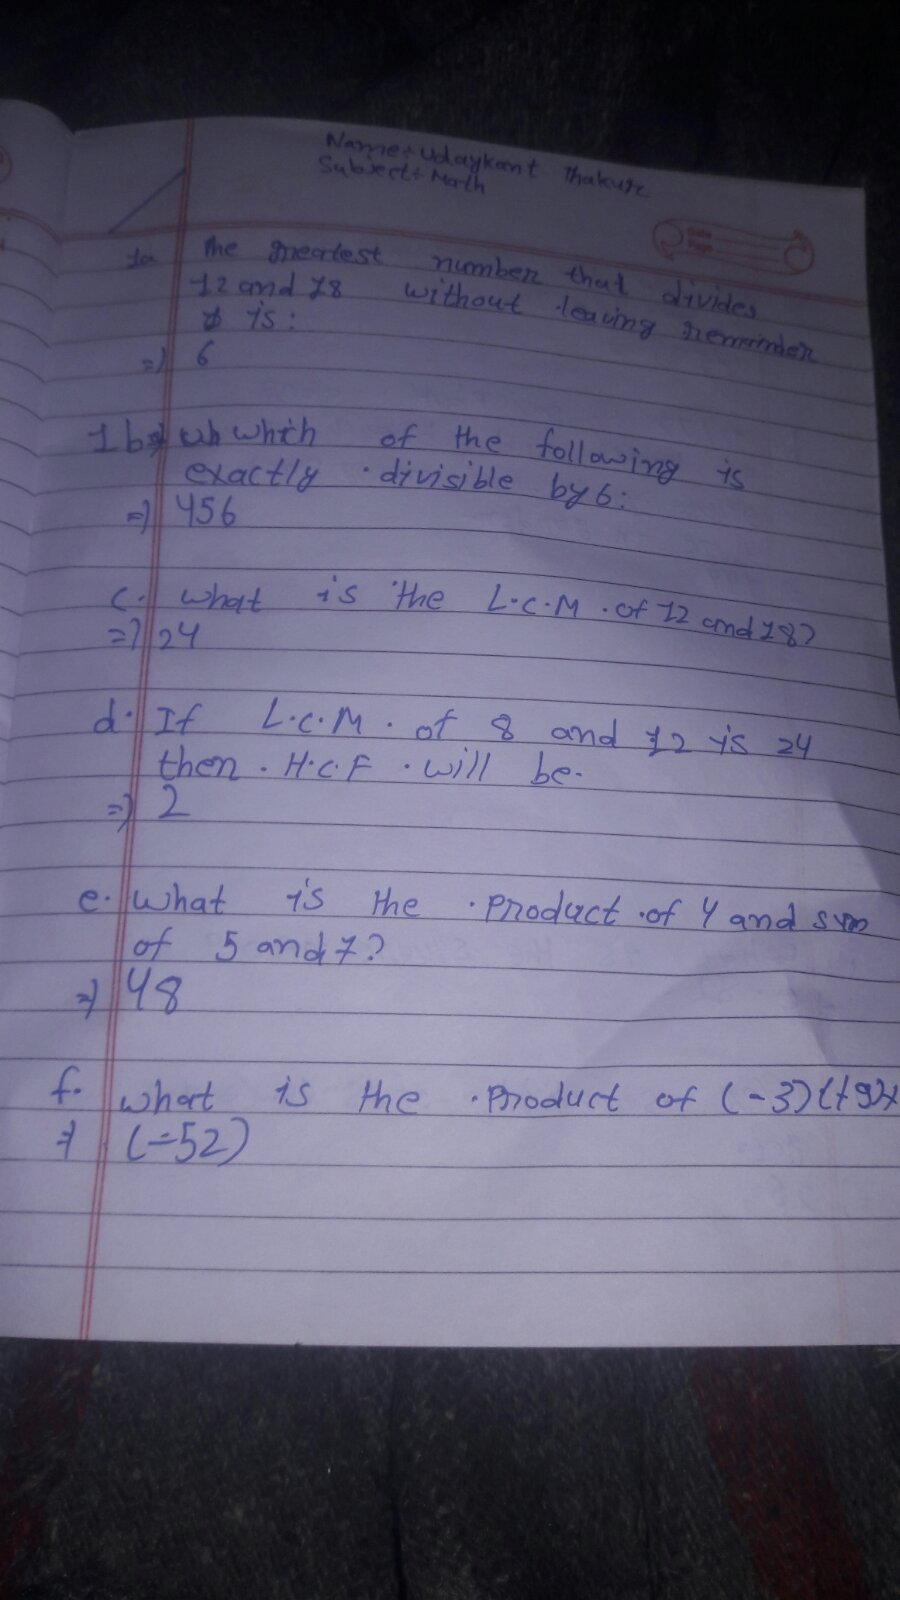 Name:- Udaykant Thakur
Subject:- Math
Date
Page
1a The greatest number that divides
12 and 18 without leaving remainder
is:
=) 6
1b=) which of the following is
exactly divisible by 6:
=) 456
c. what is the L.C.M. of 12 and 18?
=) 24
d. If L.C.M. of 8 and 12 is 24
then H.C.F. will be.
=) 2
e. what is the product of 4 and sum
of 5 and 7?
=) 48
f. what is the product of (-3)(+9)x
=) (-52)